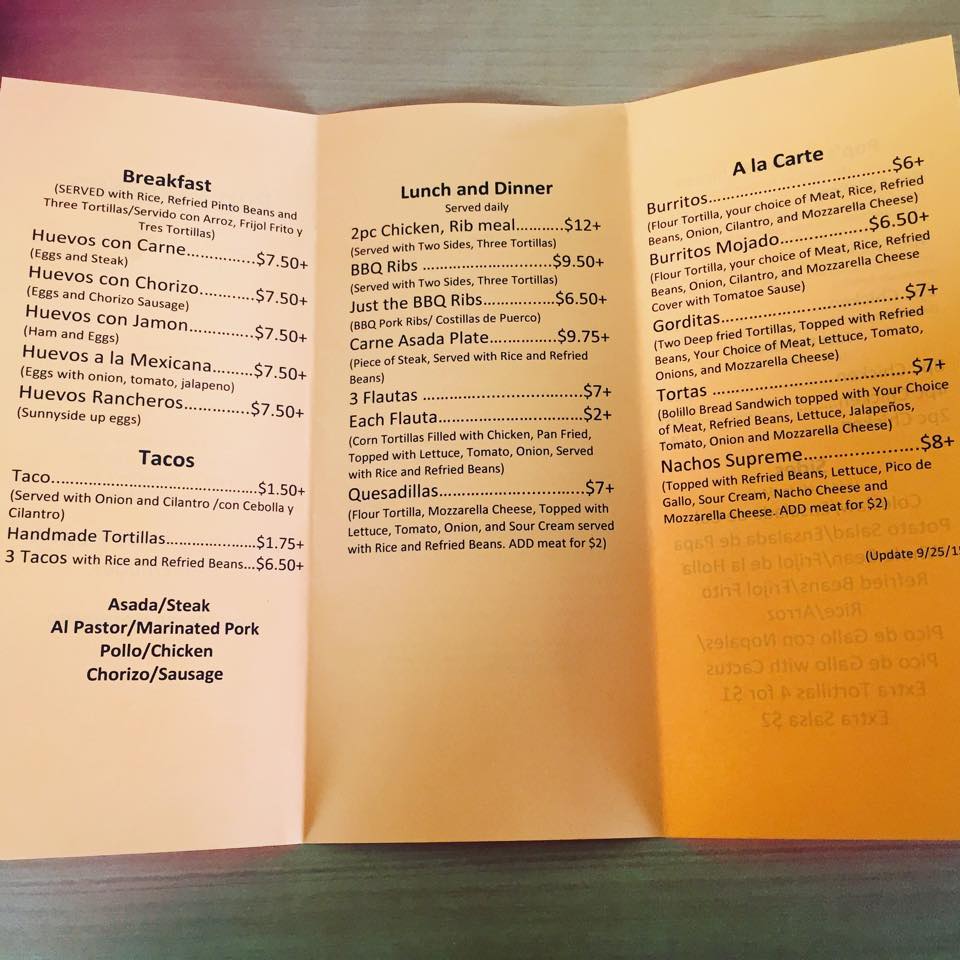 Breakfast
(SERVED with Rice, Refried Pinto Beans and
Three Tortillas/Servido con Arroz, Frijol Frito y
Tres Tortillas)
Huevos con Carne...............$7.50+
(Eggs and Steak)
Huevos con Chorizo............$7.50+
(Eggs and Chorizo Sausage)
Huevos con Jamon.............$7.50+
(Ham and Eggs)
Huevos a la Mexicana.........$7.50+
(Eggs with onion, tomato, jalapeno)
Huevos Rancheros...............$7.50+
(Sunnyside up eggs)
Tacos
Taco.......................................$1.50+
(Served with Onion and Cilantro /con Cebolla y
Cilantro)
Handmade Tortillas..................$1.75+
3 Tacos with Rice and Refried Beans...$6.50+
Asada/Steak
Al Pastor/Marinated Pork
Pollo/Chicken
Chorizo/Sausage
Lunch and Dinner
Served daily
2pc Chicken, Rib meal..........$12+
(Served with Two Sides, Three Tortillas)
BBQ Ribs ..........................$9.50+
(Served with Two Sides, Three Tortillas)
Just the BBQ Ribs...............$6.50+
(BBQ Pork Ribs/ Costillas de Puerco)
Carne Asada Plate...............$9.75+
(Piece of Steak, Served with Rice and Refried
Beans)
3 Flautas .................................$7+
Each Flauta..............................$2+
(Corn Tortillas Filled with Chicken, Pan Fried,
Topped with Lettuce, Tomato, Onion, Served
with Rice and Refried Beans)
Quesadillas...............................$7+
(Flour Tortilla, Mozzarella Cheese, Topped with
Lettuce, Tomato, Onion, and Sour Cream served
with Rice and Refried Beans. ADD meat for $2)
A la Carte
Burritos..................................$6+
(Flour Tortilla, your choice of Meat, Rice, Refried
Beans, Onion, Cilantro, and Mozzarella Cheese)
Burritos Mojado.................$6.50+
(Flour Tortilla, your choice of Meat, Rice, Refried
Beans, Onion, Cilantro, and Mozzarella Cheese
Cover with Tomatoe Sause)
Gorditas.................................$7+
(Two Deep fried Tortillas, Topped with Refried
Beans, Your Choice of Meat, Lettuce, Tomato,
Onions, and Mozzarella Cheese)
Tortas ....................................$7+
(Bolillo Bread Sandwich topped with Your Choice
of Meat, Refried Beans, Lettuce, Jalapeños,
Tomato, Onion and Mozzarella Cheese)
Nachos Supreme.....................$8+
(Topped with Refried Beans, Lettuce, Pico de
Gallo, Sour Cream, Nacho Cheese and
Mozzarella Cheese. ADD meat for $2)
(Update 9/25/15
Potato Salad/Ensalada de Papa
Refried Beans/Frijol Frito
Rice/Arroz
Pico de Gallo con Nopales/
Pico de Gallo with Cactus
Extra Tortillas 4 for $1
Extra Salsa $2